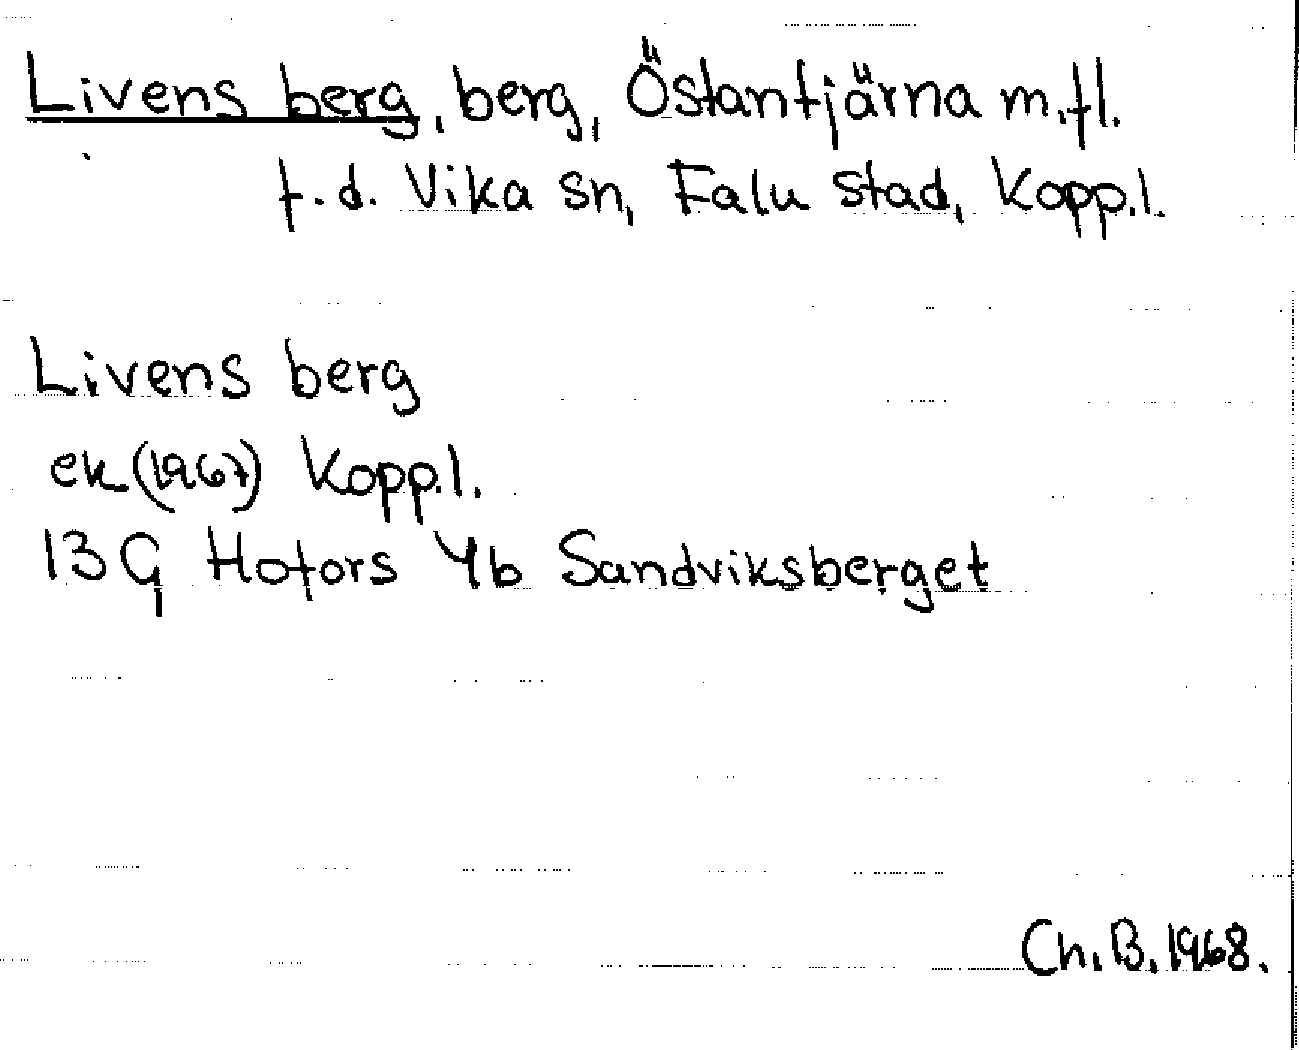 Livens berg, berg, Östantjärna m.fl.
f.d. Vika sn, Falu stad, Kopp.l.
Livens berg
ek (1967) Kopp.l.
13 G Hofors 4b Sandviksberget
Ch. B. 1968.